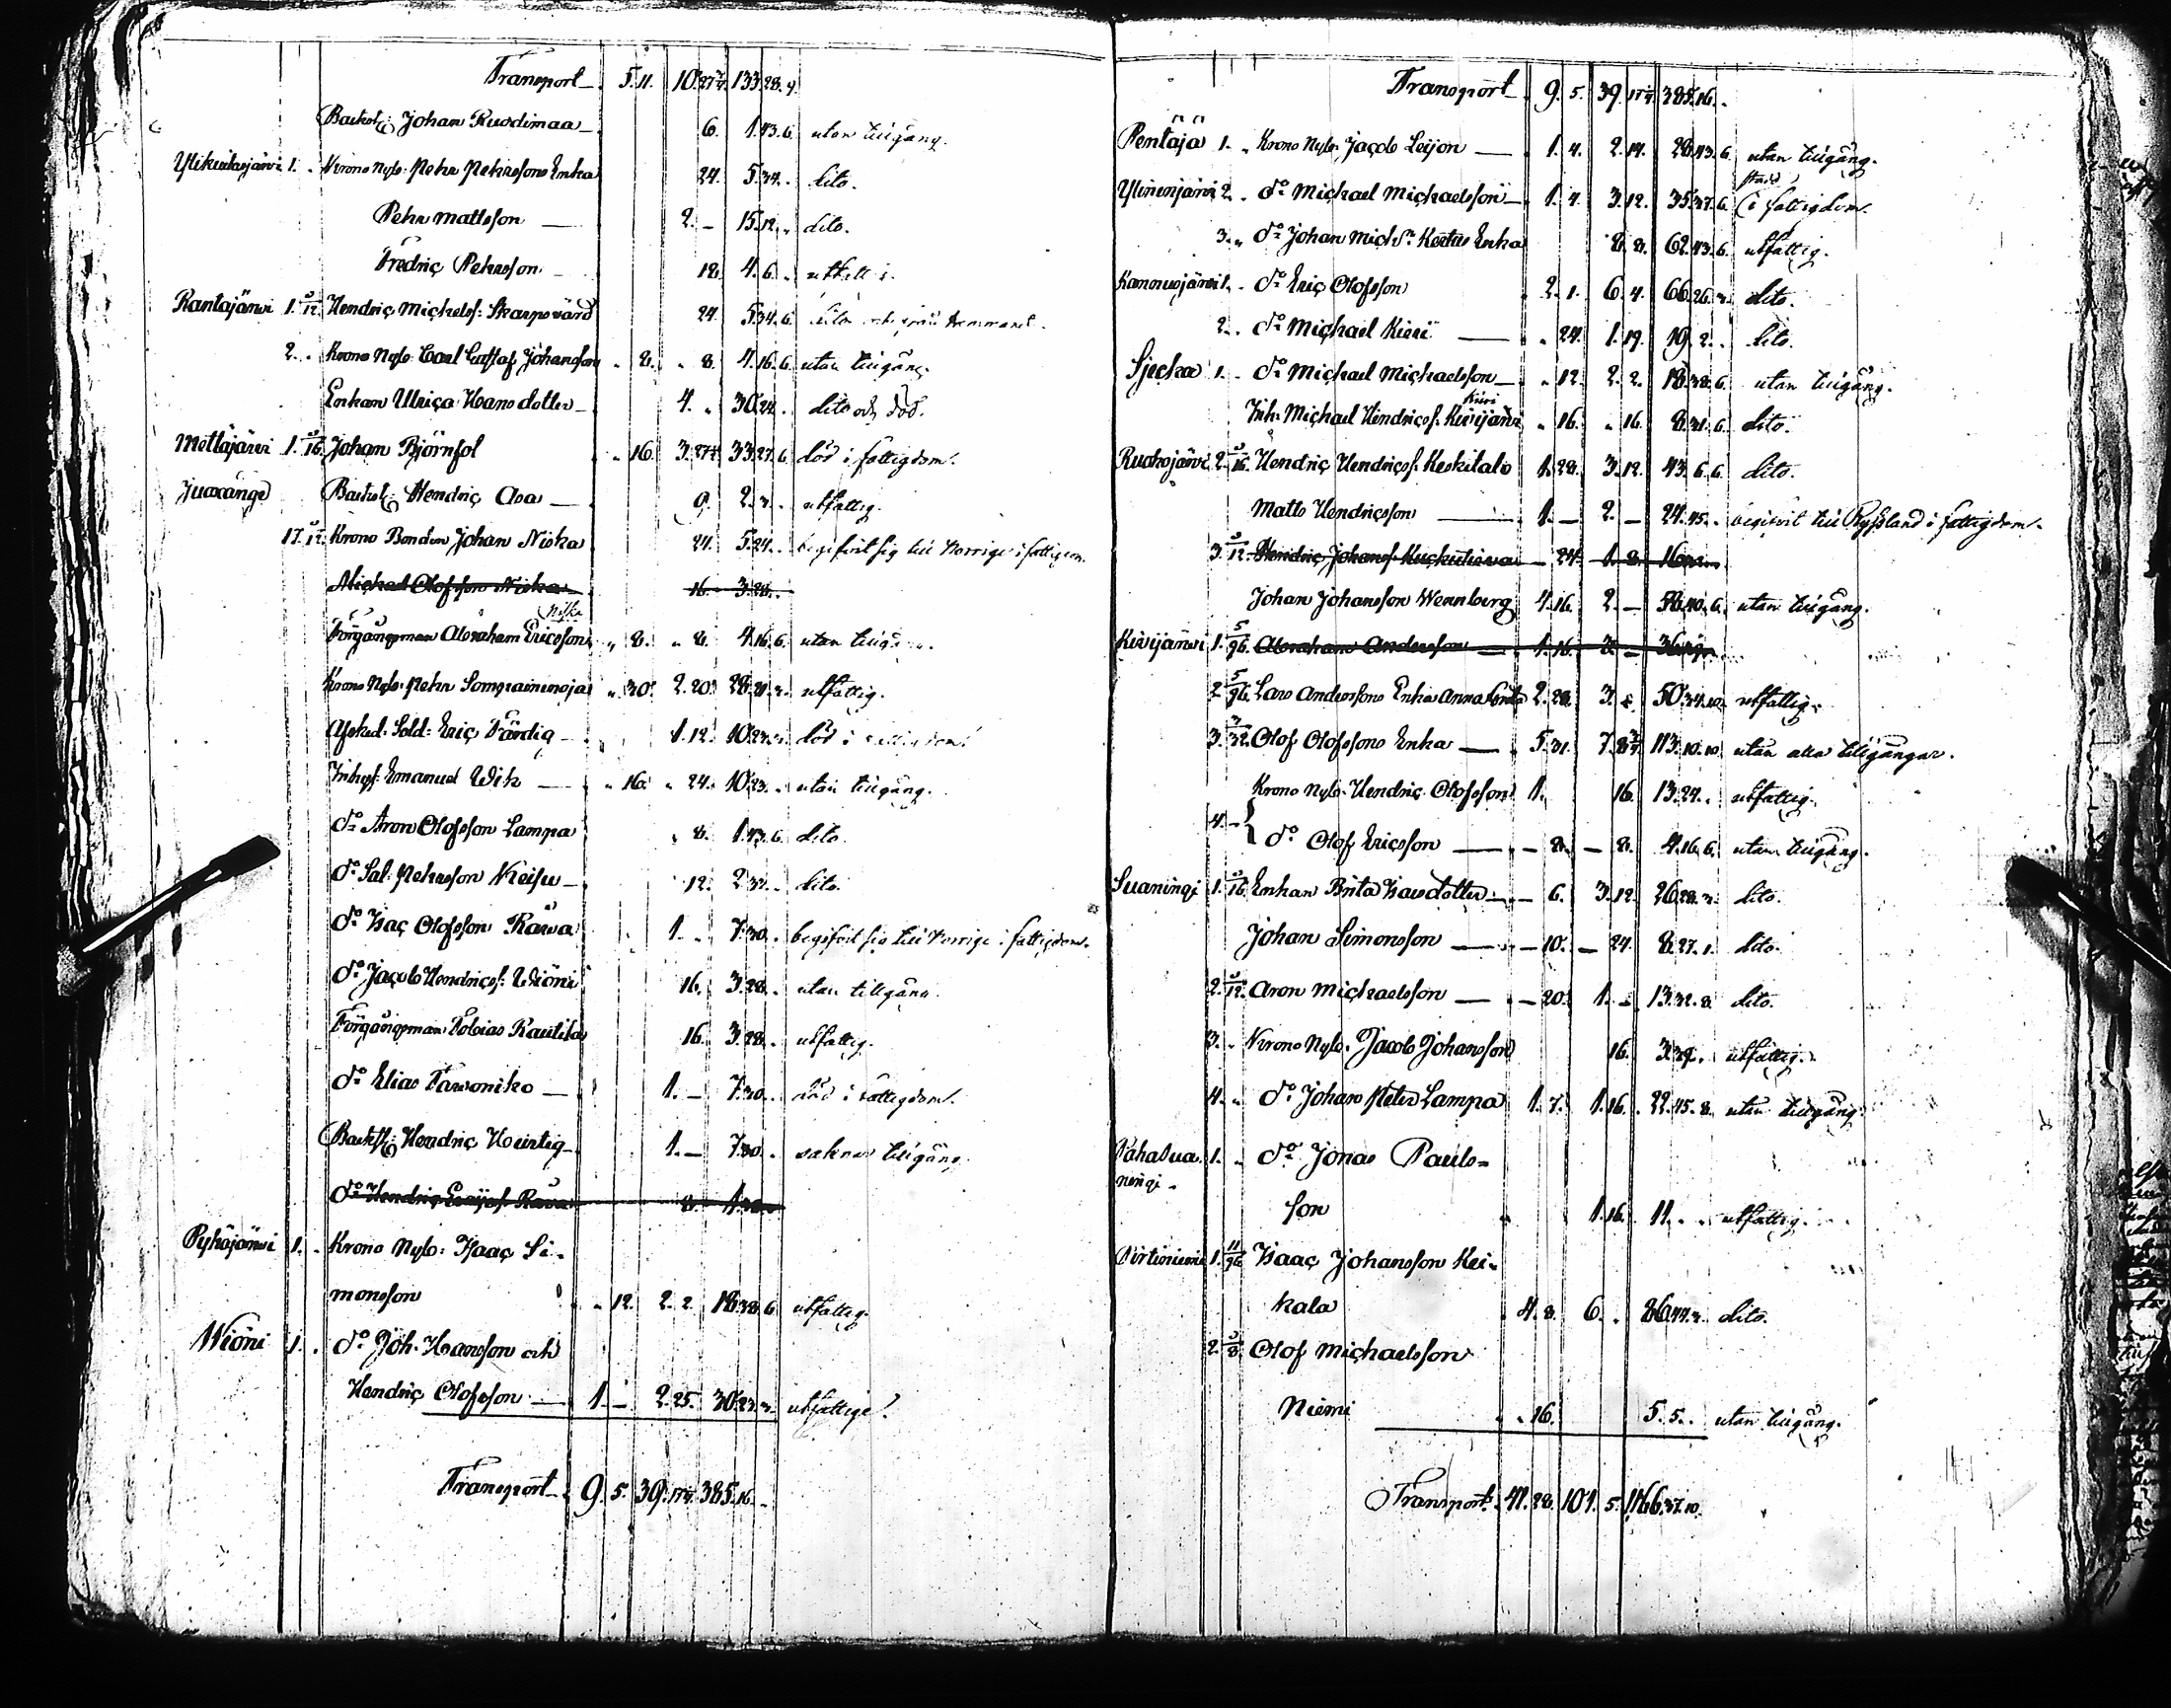 Transport 5. 11. 10. 27¾. 133. 28. 9.
Backst: Johan Ruodimaa 6. 1. 43. 6. utan tillgång.
1. Krono Nyb. Pehr Pehrssons Enka 24. 5. 34. dito.
Pehr Mattsson 2. — 15. 12. dito.
Fredric Pehrsson 18. 4. 6. utfatt
Rantajärvi 1. 5/12. Hendric Michelsf: Skarpsvärd 24. 5. 34. 6. dito
2. Krono Nyb. Carl Gustaf Johansson 8. 8. 4. 16. 6. utan tillgång.
Enkan Ulrica Hansdotter 4. 30. 24. dito och död.
Mettäjärvi 1. 5/16. Johan Björnfot 16. 3. 27¾. 33. 27. 6. död i fattigdom.
Juoxänge Backst: Hendric Asa 9. 2. 3. utfattig.
17. 5/12. Krono Bonden Johan Niska 24. 5. 24. begifvit sig till Norrige i fattigdom.
Michael Olofsson Niska 16. 3. 28.
Niska
Förgångsman Abraham Ericsson 8. 8. 4. 16. 6. utan tillg
Krono Nyb. Pehr Sompainenoja 30. 2. 20. 28. 21. 3. utfattig.
Afsked. Sold: Eric Färdig 1. 12. 10. 23. 3. död i fattigdom.
Inhysf. Emanuel Wik 16. 24. 10. 23. utan tillgång.
do Aron Olofsson Lampa 8. 1. 43. 6. dito.
do Sal. Pehrsson Keisu 12. 2. 37. dito.
do Isac Olofsson Rawa 1. 7. 30. begifvit sig till Norrige i fattigdom.
do Jacob Hendricsf: Wiöni 16. 3. 28. utan tillgång.
Förgångsman Tobias Rautila 16. 3. 28. utfattig.
do Elias Tawoniko 1. — 7. 30. död i fattigdom.
Backst: Hendric Heintig 1. — 7. 30. saknar tillgång.
do Hendric Rawa 8. 1. 30.
Pyhäjärvi 1. Krono Nyb: Isaac Si-
monsson 12. 2. 2. 18. 38. 6. utfattig.
Wiöni 1. do Joh. Hansson och
Hendric Olofsson 1. — 2. 25. 30. 23. 3. utfattige.
Transport 9. 5. 39. 17¾. 385. 16.
Transport 9. 5. 39. 17¾. 385. 16.
Pentäjä 1. Krono Nyb. Jacob Leijon 1. 4. 2. 14. 28. 43. 6. utan tillgång.
Ylinenjärvi 2. do Michael Michaelsson 1. 4. 3. 12. 35. 37. 6. i fattigdom.
3. do Johan Michs Kertus Enka 8. 8. 62. 43. 6. utfattig.
Kanonusjärvi 1. do Eric Olofsson 2. 1. 6. 4. 66. 26. 3. dito.
2. do Michael Kieri 24. 1. 19. 19. 2. dito.
Sjecka 1. do Michael Michaelsson 12. 2. 2. 18. 38. 6. utan tillgång.
Inh. Michael Hendricsf. Kivijärvi 16. 16. 8. 31. 6. dito.
Ruokojärvi 2. 5/16. Hendric Hendricsf. Keskitalo 1. 28. 3. 12. 43. 6. 6. dito.
Matts Hendricsson 1. — 2. — 24. 45. begifvit till Ryssland i fattigdom.
3. 5/12. Hendric Johansf. 24. 1. 8. 16.
Johan Johansson Wennberg 4. 16. 2. — 56. 40. 6. utan tillgång.
Kivijärvi 1. 5/96. Abraham Andersson 1. 16. 2. — 36.
2. 5/96. Lars Anderssons Enka Anna Brita 2. 28. 3. 8. 50. 34. 10. utfattig.
3. 3/32. Olof Olofssons Enka 5. 31. 7. 8¾. 113. 10. 10. utan alla tillgångar.
Krono Nyb. Hendric Olofsson 1. 16. 13. 24. utfattig.
4. do Olof Ericsson — 8. — 8. 4. 16. 6. utan tillgång.
Suaningi 1. 5/16. Enkan Brita Isacsdotter — 6. 3. 12. 26. 28. 3. dito.
Johan Simonsson — 10. — 24. 8. 27. 1. dito.
2. 5/12. Aron Michaelsson — 20. 1. — 13. 32. 8. dito.
3. Krono Nyb. Jacob Johansson 16. 3. 39. utfattig.
4. do Johan Peter Lampa 1. 7. 1. 16. 22. 45. 8. utan tillgång.
Pahasua- 1. do Jonas Pauls-
ningi son 1. 16. 11. utfattig.
Pirtiniemi 1. 11/96 Isaac Johansson Kei-
kala 4. 8. 6. 86. 44. 3. dito.
2. 5/8. Olof Michaelsson
Niemi 16. 5. 5. utan tillgång.
Transport. 41. 28. 101. 5. 1166. 37. 10.